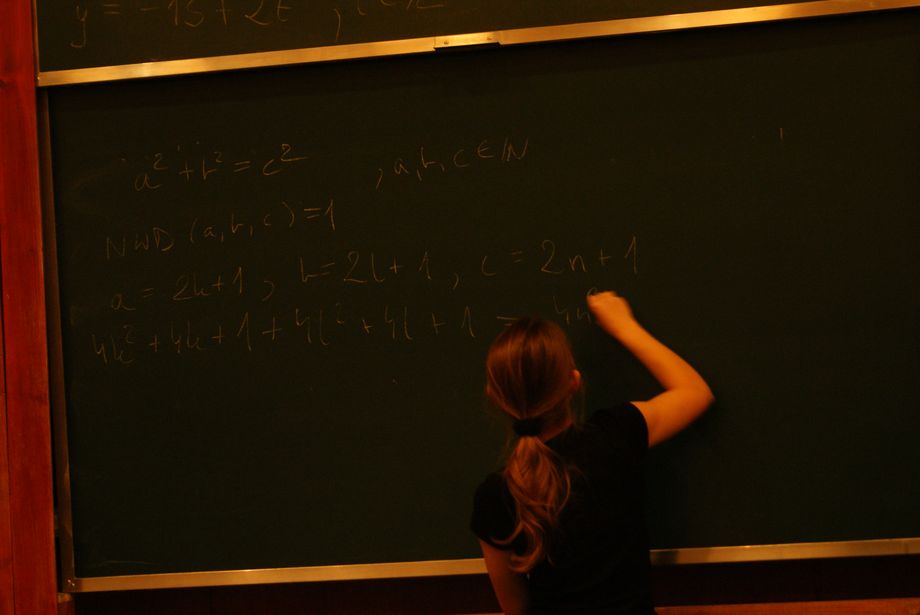 y = -13 + 2t
a² + b² = c² , a, b, c ∈ ℕ
NWD (a, b, c) = 1
a = 2k+1, b = 2l+1, c = 2n+1
4k² + 4k + 1 + 4l² + 4l + 1 = 4n²